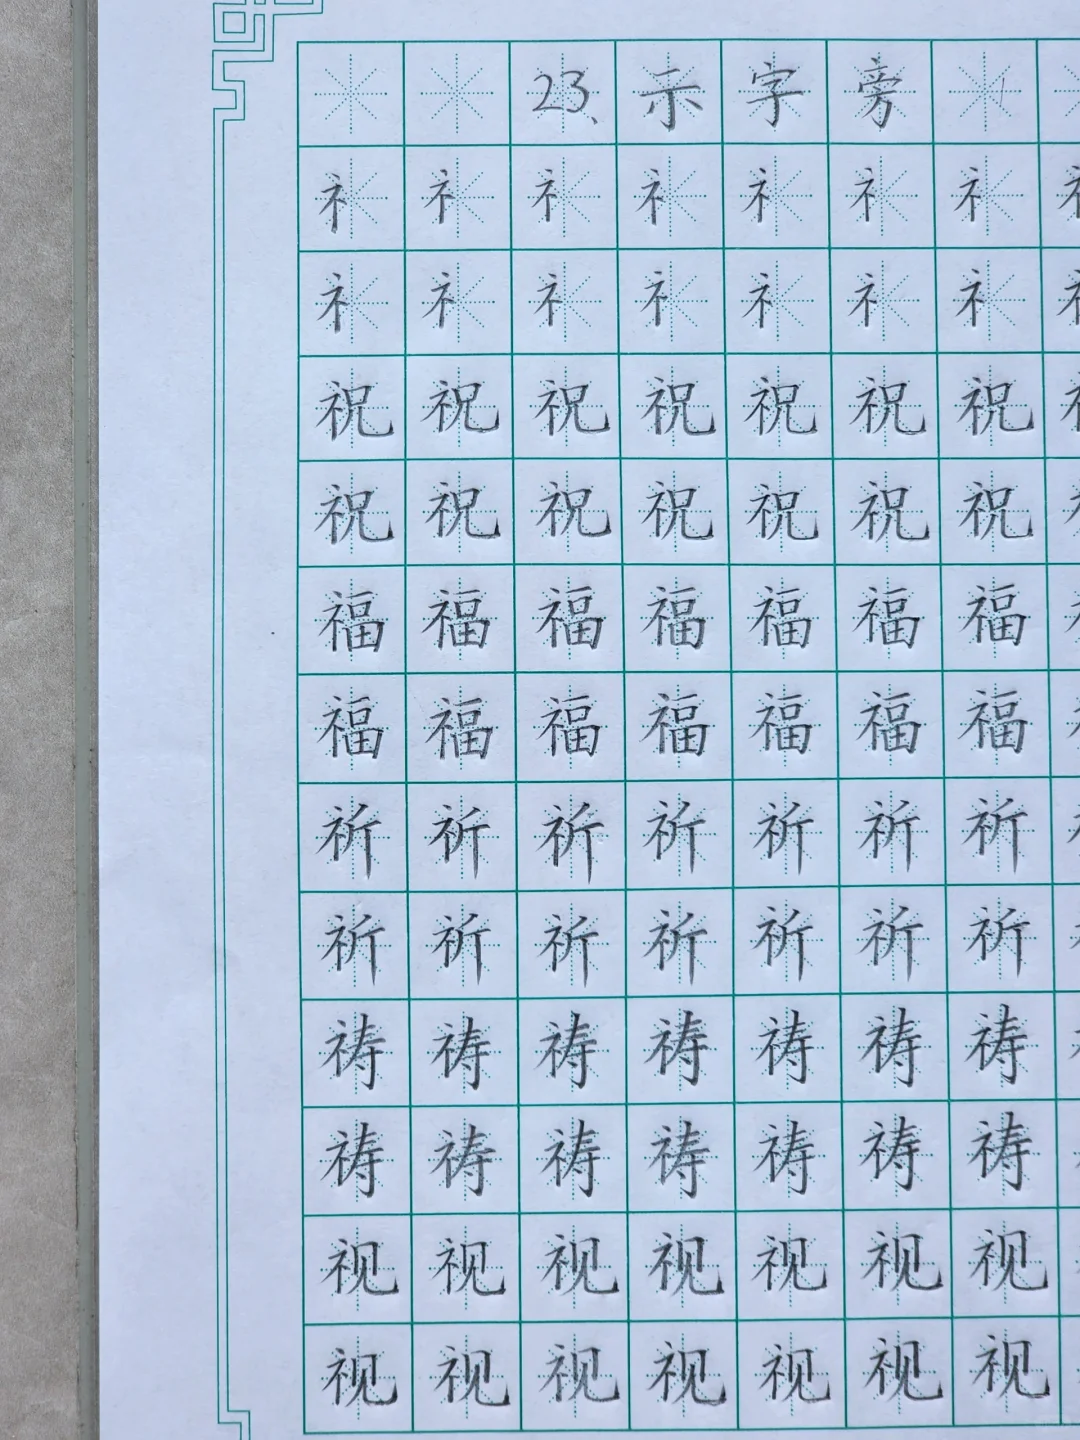 23、示字旁
礻礻礻礻礻礻礻
礻礻礻礻礻礻礻
祝祝祝祝祝祝祝
祝祝祝祝祝祝祝
福福福福福福福
福福福福福福福
祈祈祈祈祈祈祈
祈祈祈祈祈祈祈
祷祷祷祷祷祷祷
祷祷祷祷祷祷祷
视视视视视视视
视视视视视视视